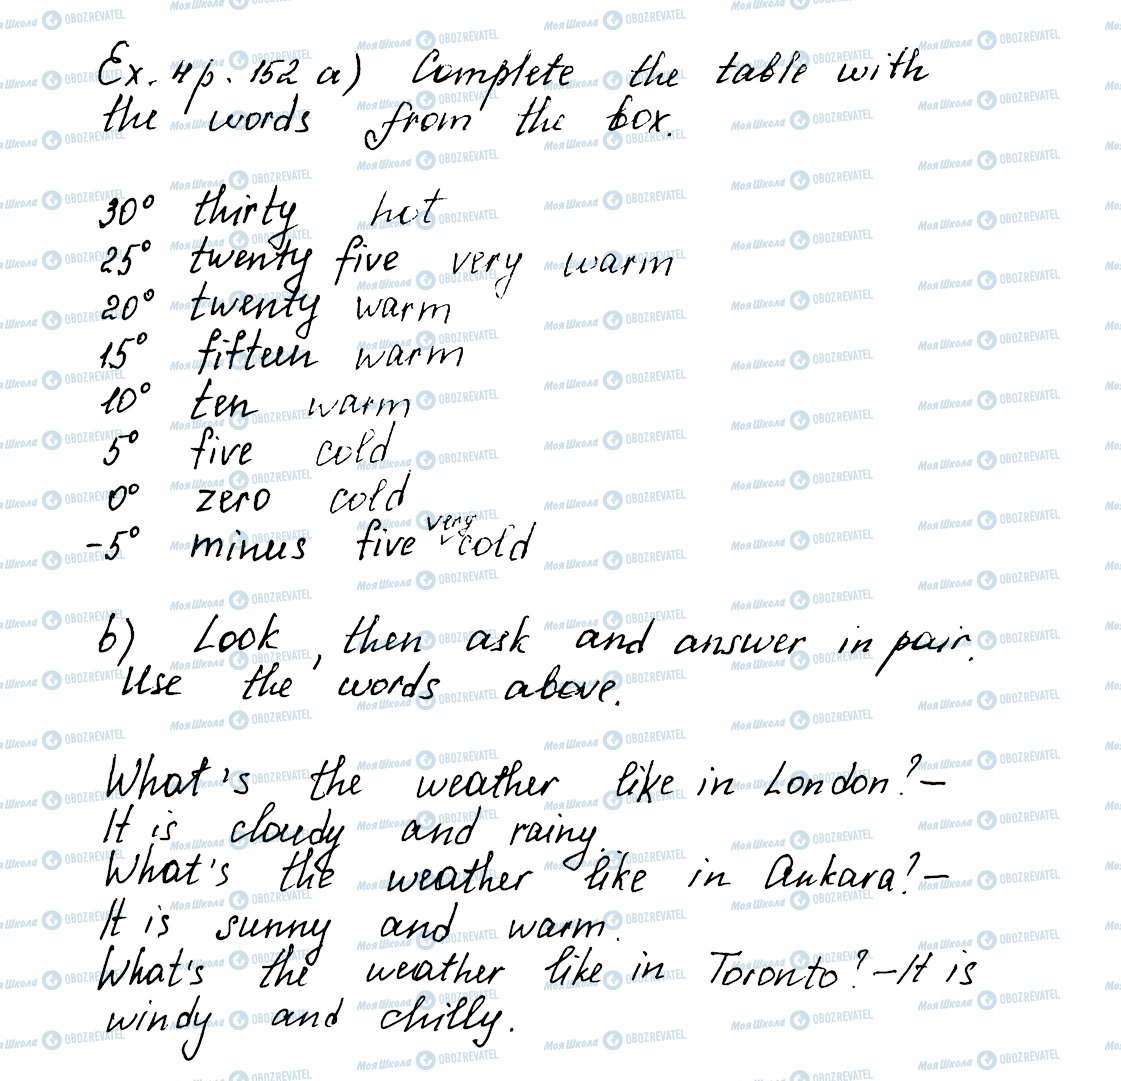 Ex. 4 p. 152 a) Complete the table with
the words from the box.
30° thirty hot
25° twenty five very warm
20° twenty warm
15° fifteen warm
10° ten warm
5° five cold
0° zero cold
-5° minus five very cold
b) Look, then ask and answer in pair.
Use the words above.
What's the weather like in London? –
It is cloudy and rainy.
What's the weather like in Ankara? –
It is sunny and warm.
What's the weather like in Toronto? – It is
windy and chilly.